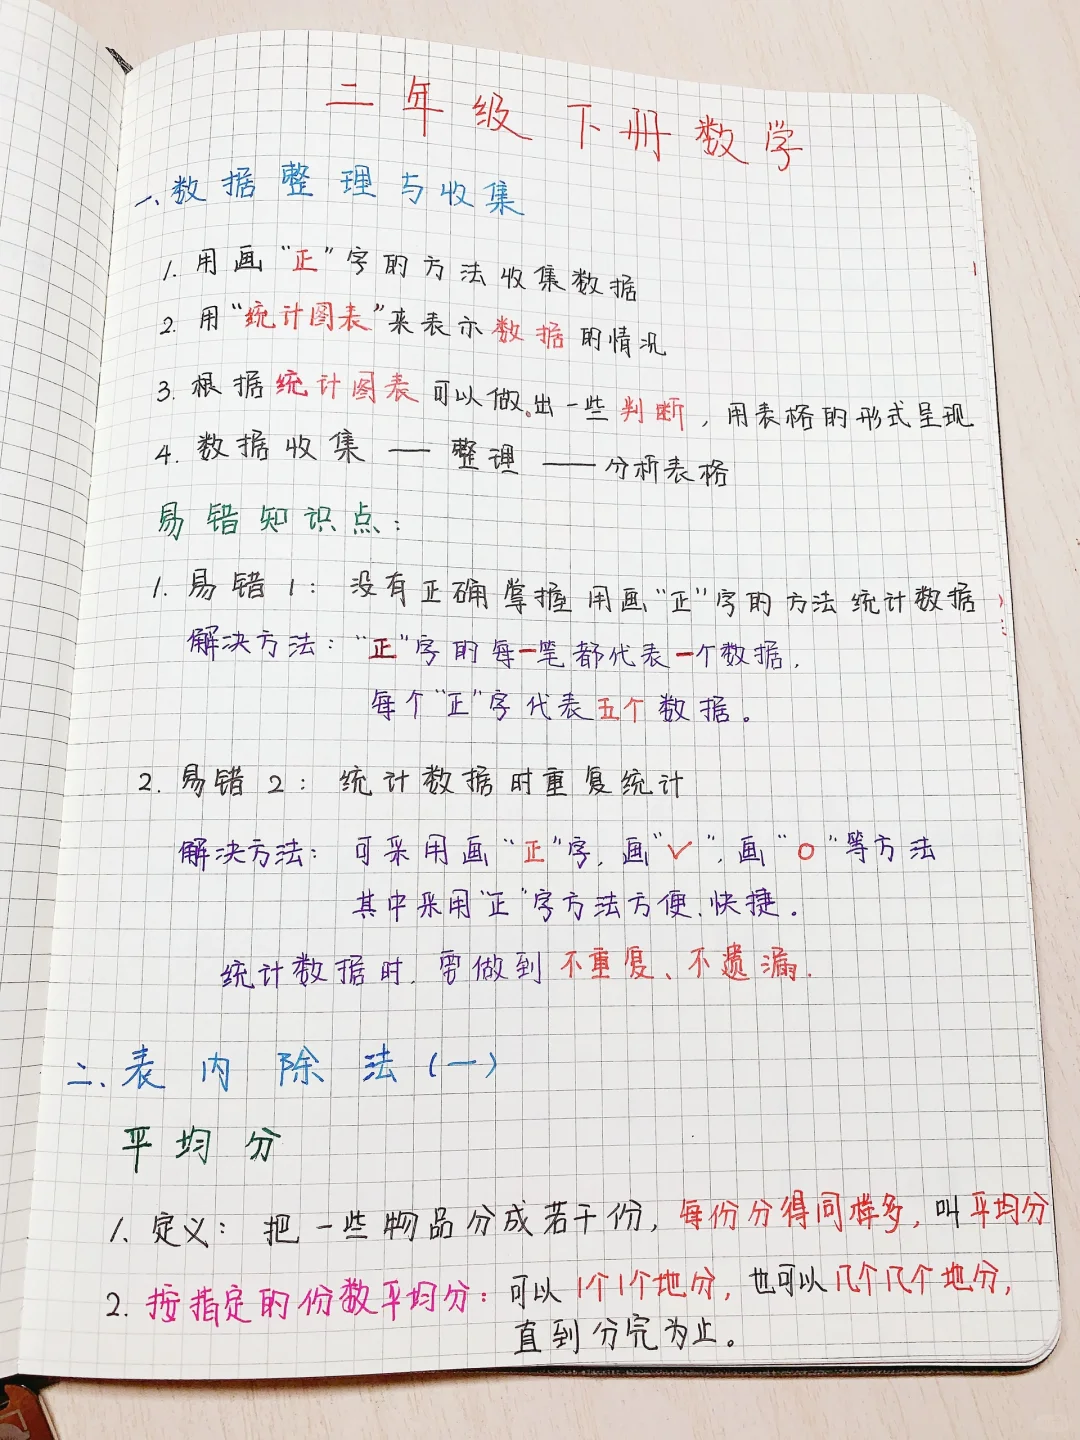 二年级下册数学
一、数据整理与收集
1. 用画“正”字的方法收集数据
2. 用“统计图表”来表示数据的情况
3. 根据统计图表可以做出一些判断，用表格的形式呈现
4. 数据收集——整理——分析表格
易错知识点：
1. 易错1：没有正确掌握用画“正”字的方法统计数据
解决方法：“正”字的每一笔都代表一个数据，
每个“正”字代表五个数据。
2. 易错2：统计数据时重复统计
解决方法：可采用画“正”字，画“✓”，画“○”等方法
其中采用“正”字方法方便、快捷。
统计数据时，要做到不重复、不遗漏.
二、表内除法(一)
平均分
1. 定义：把一些物品分成若干份，每份分得同样多，叫平均分
2. 按指定的份数平均分：可以1个1个地分，也可以几个几个地分，
直到分完为止。